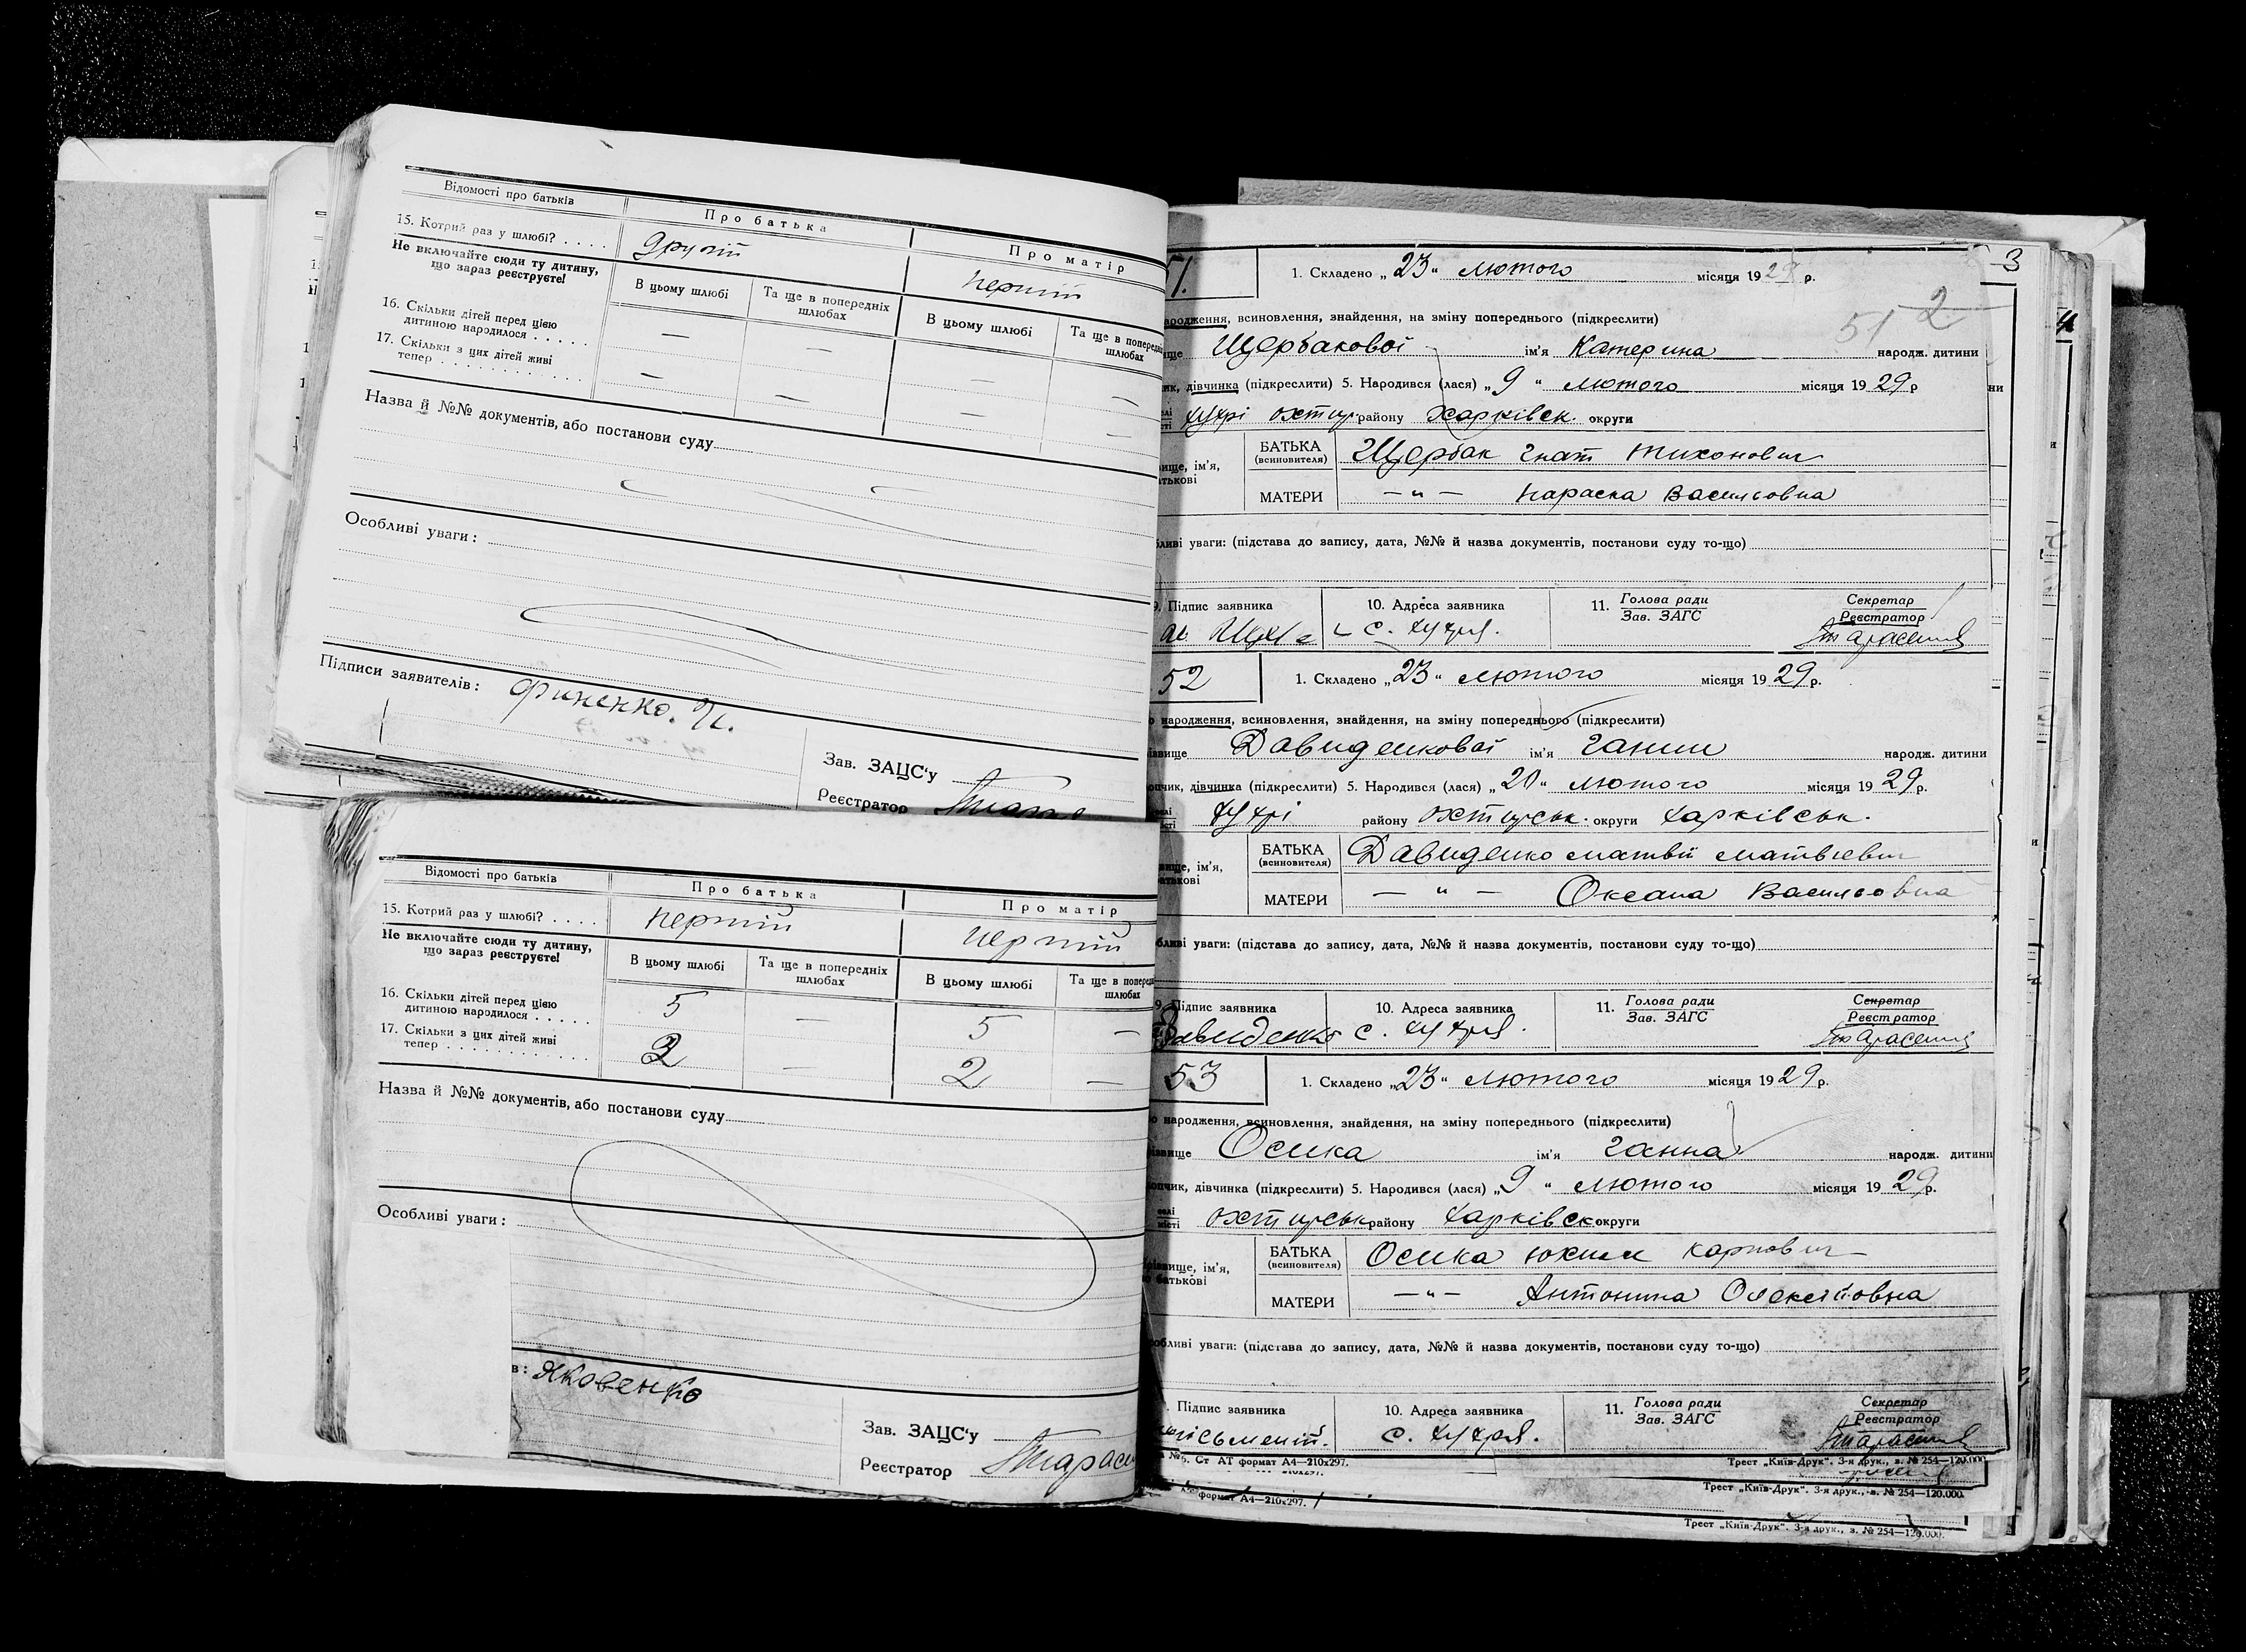 Відомості про батьків
Про батька
Про матір
15. Котрий раз у шлюбі? . . . .
другий
перший
Не включайте сюди ту дитину,
що зараз реєструєте!
В цьому шлюбі
Та ще в попередніх
шлюбах
В цьому шлюбі
Та ще в попередні
шлюбах
16. Скільки дітей перед цією
дитиною народилося . . . . .
— — — —
17. Скільки з цих дітей живі
тепер . . . . . . . . . . . .
— — — —
Назва й №№ документів, або постанови суду
Особливі уваги:
Підписи заявителів: Финенко. И.
Зав. ЗАЦС'у
Реєстратор
Відомості про батьків
Про батька
Про матір
15. Котрий раз у шлюбі? . . . .
перший
перший
Не включайте сюди ту дитину,
що зараз реєструєте!
В цьому шлюбі
Та ще в попередніх
шлюбах
В цьому шлюбі
Та ще в попередн
шлюбах
16. Скільки дітей перед цією
дитиною народилося . . . . .
5 — 5 —
17. Скільки з цих дітей живі
тепер . . . . . . . . . . . .
2 — 2 —
Назва й №№ документів, або постанови суду
Особливі уваги:
в: Яковенко
Зав. ЗАЦС'у
Реєстратор Тарасе
3
51 2
51. 1. Складено „23“ лютого місяця 1929 р.
ародження, всиновлення, знайдення, на зміну попереднього (підкреслити)
ище Щербакової ім'я Катерина народж. дитини
ик, дівчинка (підкреслити) 5. Народився (лася) „9“ лютого місяця 1929 р
хухрі охтир району Харківськ. округи
вище, ім'я,
атькові
БАТЬКА
(всиновителя)
Щербак Гнат Тихонович
МАТЕРИ —„— Параска Васильовна
бливі уваги: (підстава до запису, дата, №№ й назва документів, постанови суду то-що)
9. Підпис заявника
10. Адреса заявника
с. Хухря.
11. Голова ради
Зав. ЗАГС
Секретар
Реєстратор
52 1. Складено „23“ лютого місяця 1929 р.
о народження, всиновлення, знайдення, на зміну попереднього (підкреслити)
ізвище Давиденкової ім'я Ганни народж. дитини
опчик, дівчинка (підкреслити) 5. Народився (лася) „20“ лютого місяця 1929 р.
хухрі району Охтирськ. округи Харківськ.
вище, ім'я,
батькові
БАТЬКА
(всиновителя)
Давиденко матвій матвієвич
МАТЕРИ —„— Оксана Васильовна
бливі уваги: (підстава до запису, дата, №№ й назва документів, постанови суду то-що)
9. Підпис заявника
Давиденко
10. Адреса заявника
с. Хухря.
11. Голова ради
Зав. ЗАГС
Секретар
Реєстратор
53 1. Складено „23“ лютого місяця 1929 р.
о народження, всиновлення, знайдення, на зміну попереднього (підкреслити)
ізвище Осика ім'я Ганна народж. дитини
опчик, дівчинка (підкреслити) 5. Народився (лася) „9“ лютого місяця 1929 р.
охтирськ району Харківськ округи
вище, ім'я,
батькові
БАТЬКА
(всиновителя)
Осика Юхим Карпович
МАТЕРИ —„— Антонина Олексіївна
обливі уваги: (підстава до запису, дата, №№ й назва документів, постанови суду то-що)
Підпис заявника
10. Адреса заявника
с. Хухря.
11. Голова ради
Зав. ЗАГС
Секретар
Реєстратор
№ 6. Ст АТ формат А4—210х297.
Трест „Київ-Друк“. 3-я друк., з. № 254—120.000
Трест „Київ-Друк“. 3-я друк., з. № 254—120.000.
формат А4—210х297.
Трест „Київ-Друк“. 3-я друк., з. № 254—120.000.